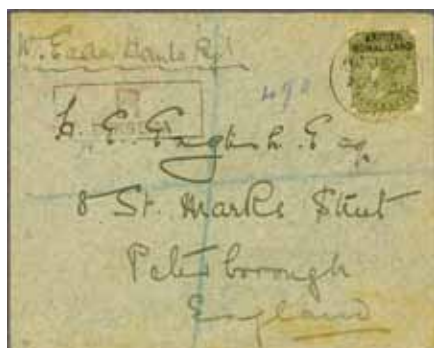 W. Eade Hants Rgt
BRITISH
SOMALILAND
R
490
L. E. English. Esq.
8 St. Marks Street
Peterborough
England